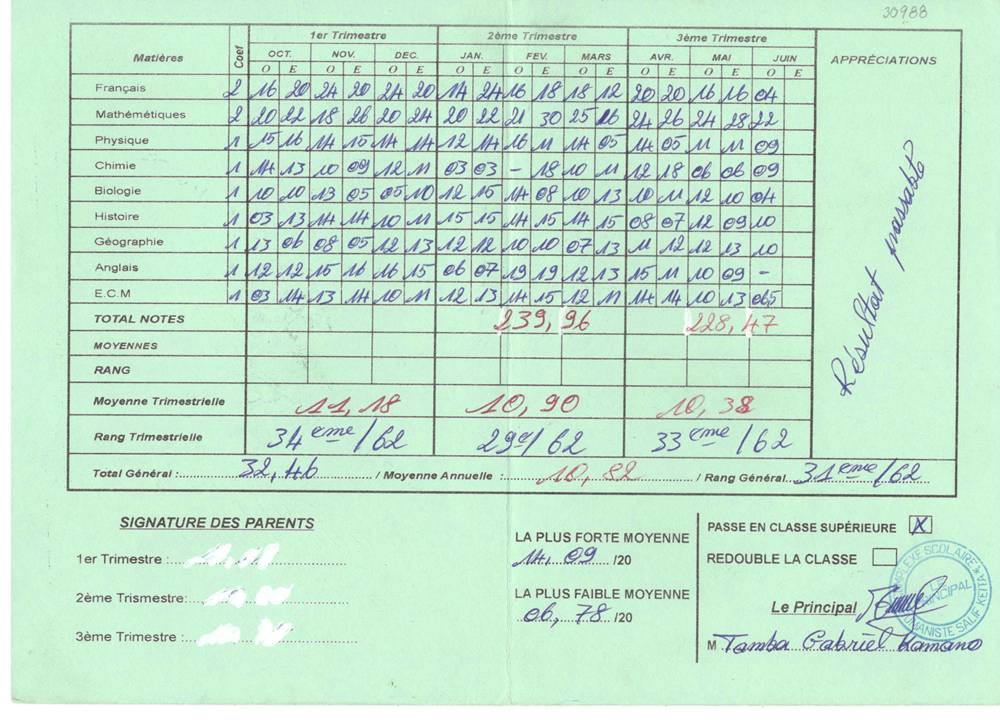 30988
1er Trimestre 2ème Trimestre 3éme Trimestre
Matières Coef OCT. NOV. DEC. JAN. FEV. MARS AVR. MAI JUIN APPRÉCIATIONS
O E O E O E O E O E O E O E O E O E
Français 2 16 20 24 20 24 20 14 24 16 18 18 12 20 20 16 16 04
Mathémétiques 2 20 22 18 26 20 24 20 22 21 30 25 26 24 26 24 28 22
Physique 1 15 16 14 15 14 14 12 14 16 11 14 05 14 05 11 11 09
Chimie 1 14 13 10 09 12 11 03 03 - 18 10 11 12 18 06 06 09
Biologie 1 10 10 13 05 05 10 12 15 14 08 10 13 10 11 12 10 04
Histoire 1 03 13 14 14 10 11 15 15 14 15 14 15 08 07 12 09 10
Géographie 1 13 06 08 05 12 13 12 12 10 10 07 13 11 12 12 13 10
Anglais 1 12 12 15 16 16 15 06 07 19 19 12 13 15 11 10 09 -
E.C.M 1 03 14 13 14 10 11 12 13 14 15 12 11 14 14 10 13 05
Résultat passable
TOTAL NOTES 239,96 228,47
MOYENNES
RANG
Moyenne Trimestrielle 11,18 10,90 10,38
Rang Trimestrielle 34eme/62 29e/62 33eme/62
Total Général : 32,46 / Moyenne Annuelle : 10,82 / Rang Général 31eme/62
SIGNATURE DES PARENTS
1er Trimestre :
2ème Trismestre:
3ème Trimestre :
LA PLUS FORTE MOYENNE
14,09 /20
LA PLUS FAIBLE MOYENNE
06,78 /20
PASSE EN CLASSE SUPÉRIEURE X
REDOUBLE LA CLASSE
Le Principal
M Tamba Gabriel Kamano
COMPLEXE SCOLAIRE
PRINCIPAL
HUMANISTE SALIF KEITA